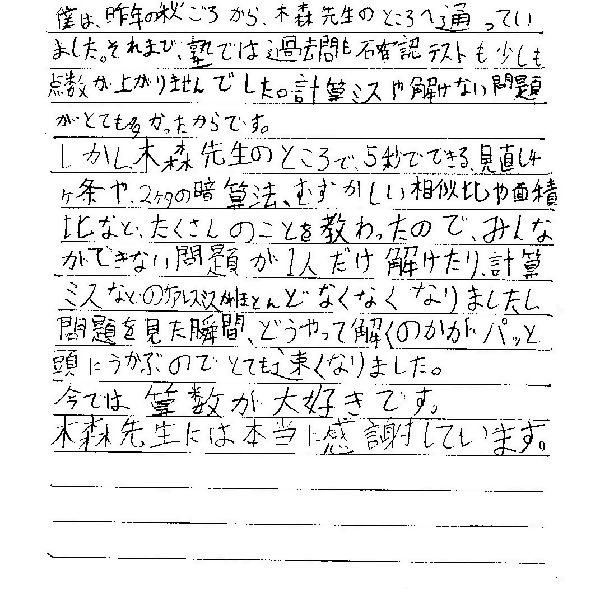 僕は、昨年の秋ごろから、木森先生のところへ通ってい
ました。それまで、塾では過去問も確認テストも少しも
点数が上がりませんでした。計算ミスや解けない問題
がとても多かったからです。
しかし木森先生のところで、5秒でできる見直し4
ヶ条や、2ケタの暗算法、むずかしい相似比や面積
比など、たくさんのことを教わったので、みんな
ができない問題が1人だけ解けたり、計算
ミスなどのケアレスミスがほとんどなくなくなりましたし
問題を見た瞬間、どうやって解くのかがパッと
頭にうかぶのでとても速くなりました。
今では算数が大好きです。
木森先生には本当に感謝しています。